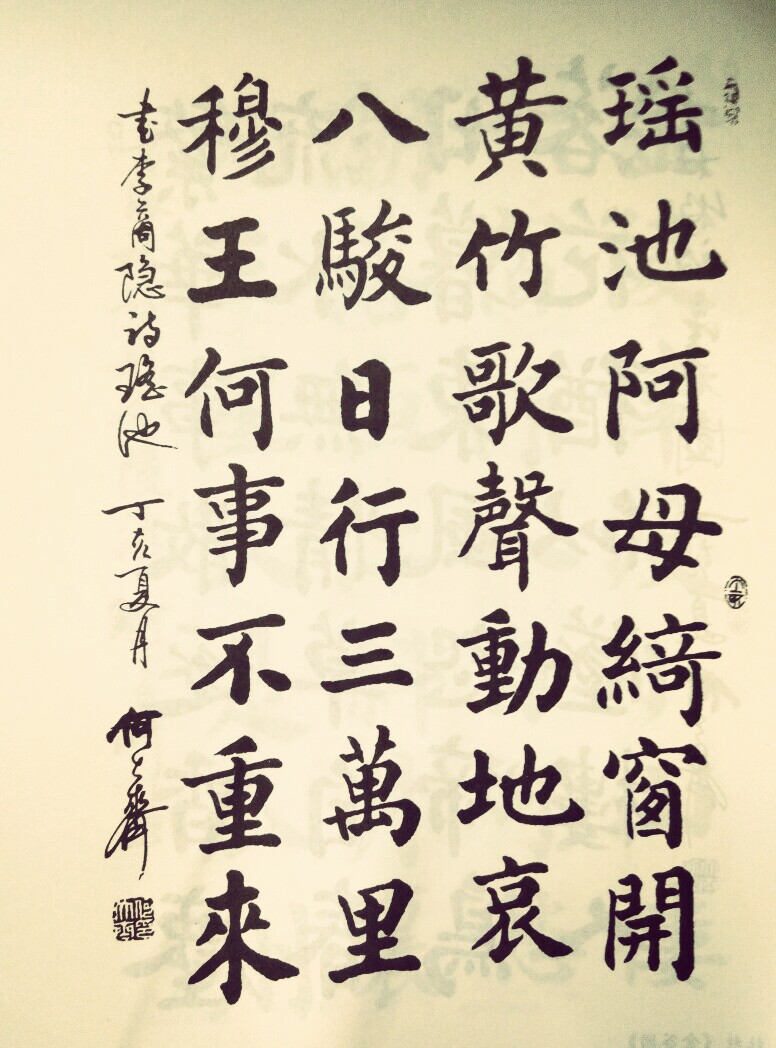 瑶池阿母綺窗開
黄竹歌聲動地哀
八駿日行三萬里
穆王何事不重來
书李商隐诗瑤池 丁亥夏月 何